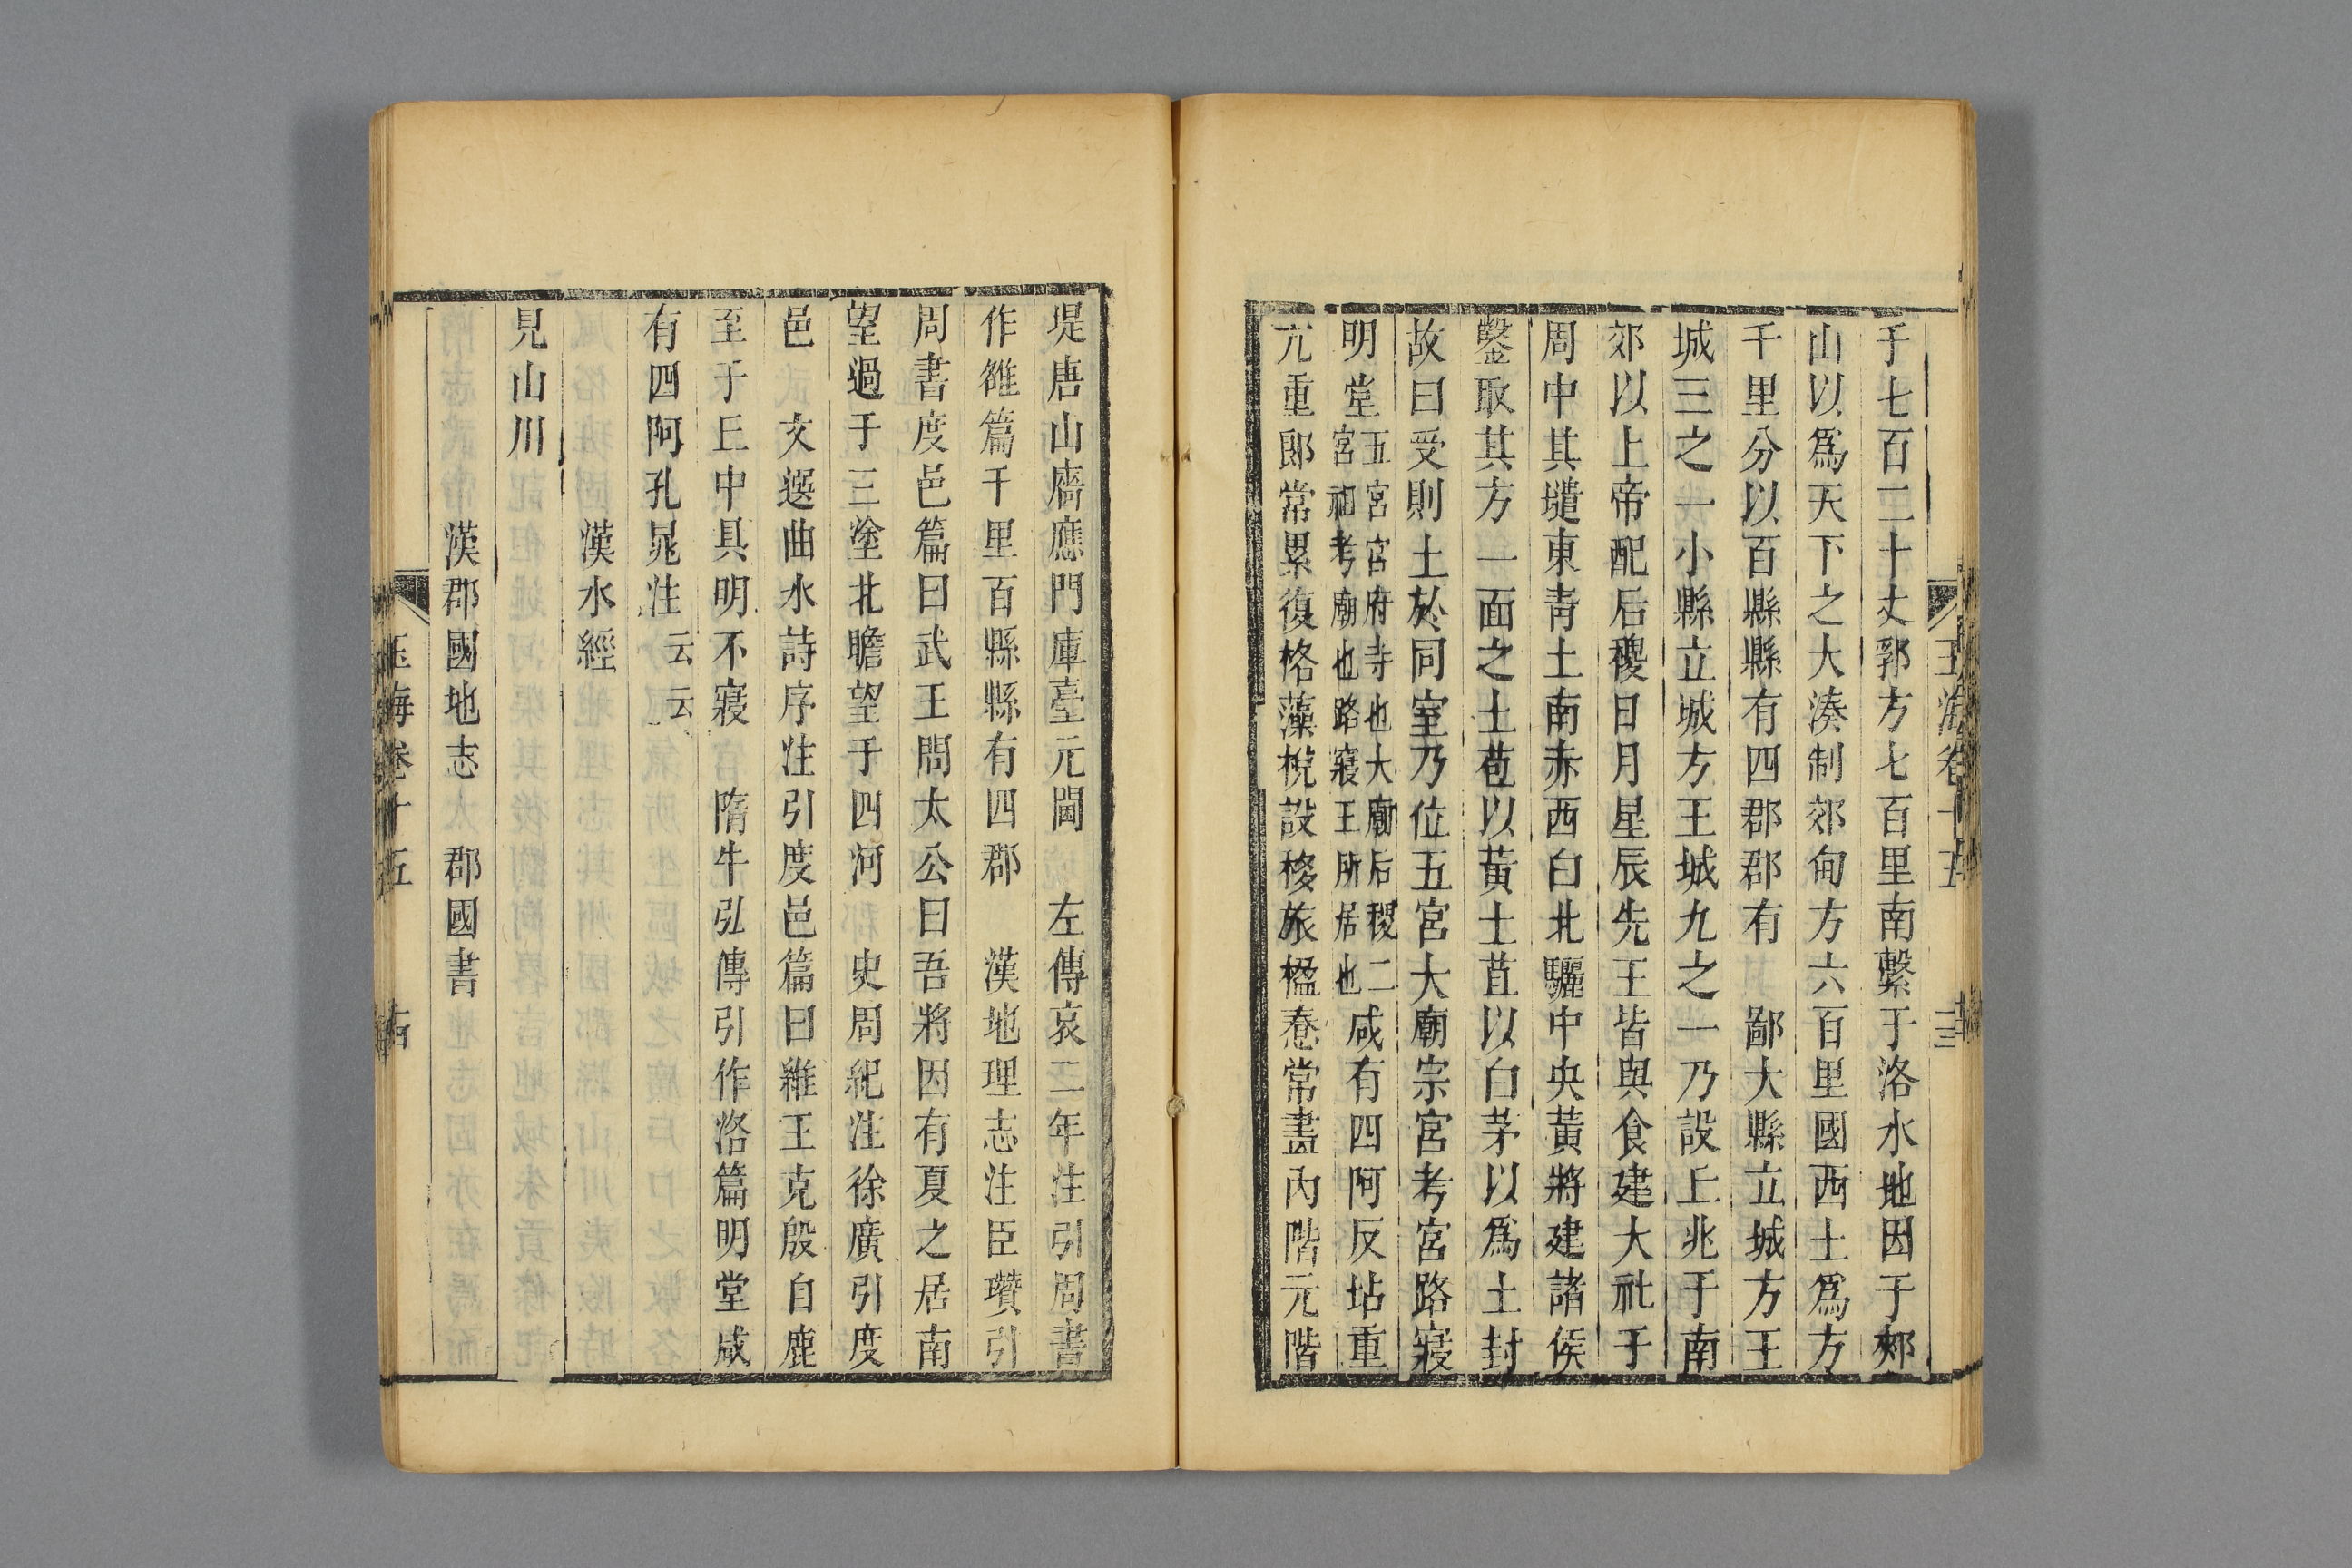 玉海卷十五 十三
于七百二十丈郛方七百里南繫于洛水地因于郟
山以爲天下之大湊制郊甸方六百里國西土爲方
千里分以百縣縣有四郡郡有 鄙大縣立城方王
城三之一小縣立城方王城九之一乃設上兆于南
郊以上帝配后稷日月星辰先王皆與食建大社于
周中其壝東靑土南赤西白北驪中央黃將建諸侯
鑿取其方一面之土苞以黃土苴以白茅以爲土封
故曰受則土於同室乃位五宮大廟宗宮考宮路寢
明堂五宮宮府寺也大廟后稷二宮祖考廟也路寢王所居也咸有四阿反坫重
亢重郞常累復格藻梲設移旅楹惷常畫內階元階
堤唐山廧應門庫臺元閫 左傳哀二年注引周書
作雒篇千里百縣縣有四郡 漢地理志注臣瓚引
周書度邑篇曰武王問太公曰吾將因有夏之居南
望過于三塗北瞻望于四河 史周紀注徐廣引度
邑 文選曲水詩序注引度邑篇曰維王克殷自鹿
至于丘中具明不寢 隋牛弘傳引作洛篇明堂咸
有四阿孔晁注云云
漢水經
見山川
漢郡國地志 郡國書
玉海卷十五 十四